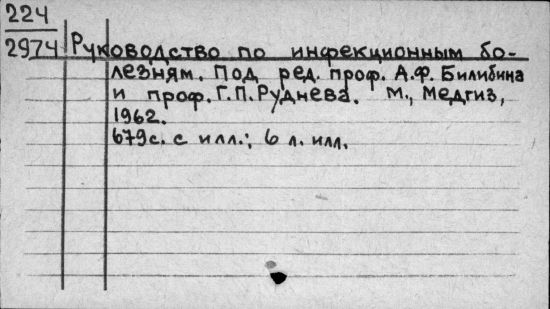 224
2974 Руководство по инфекционным бо-
лезням. Под ред. проф. А.Ф. Билибина
и проф. Г.П. Руднева. М., Медгиз,
1962.
679 с. с илл.; 6 л. илл.